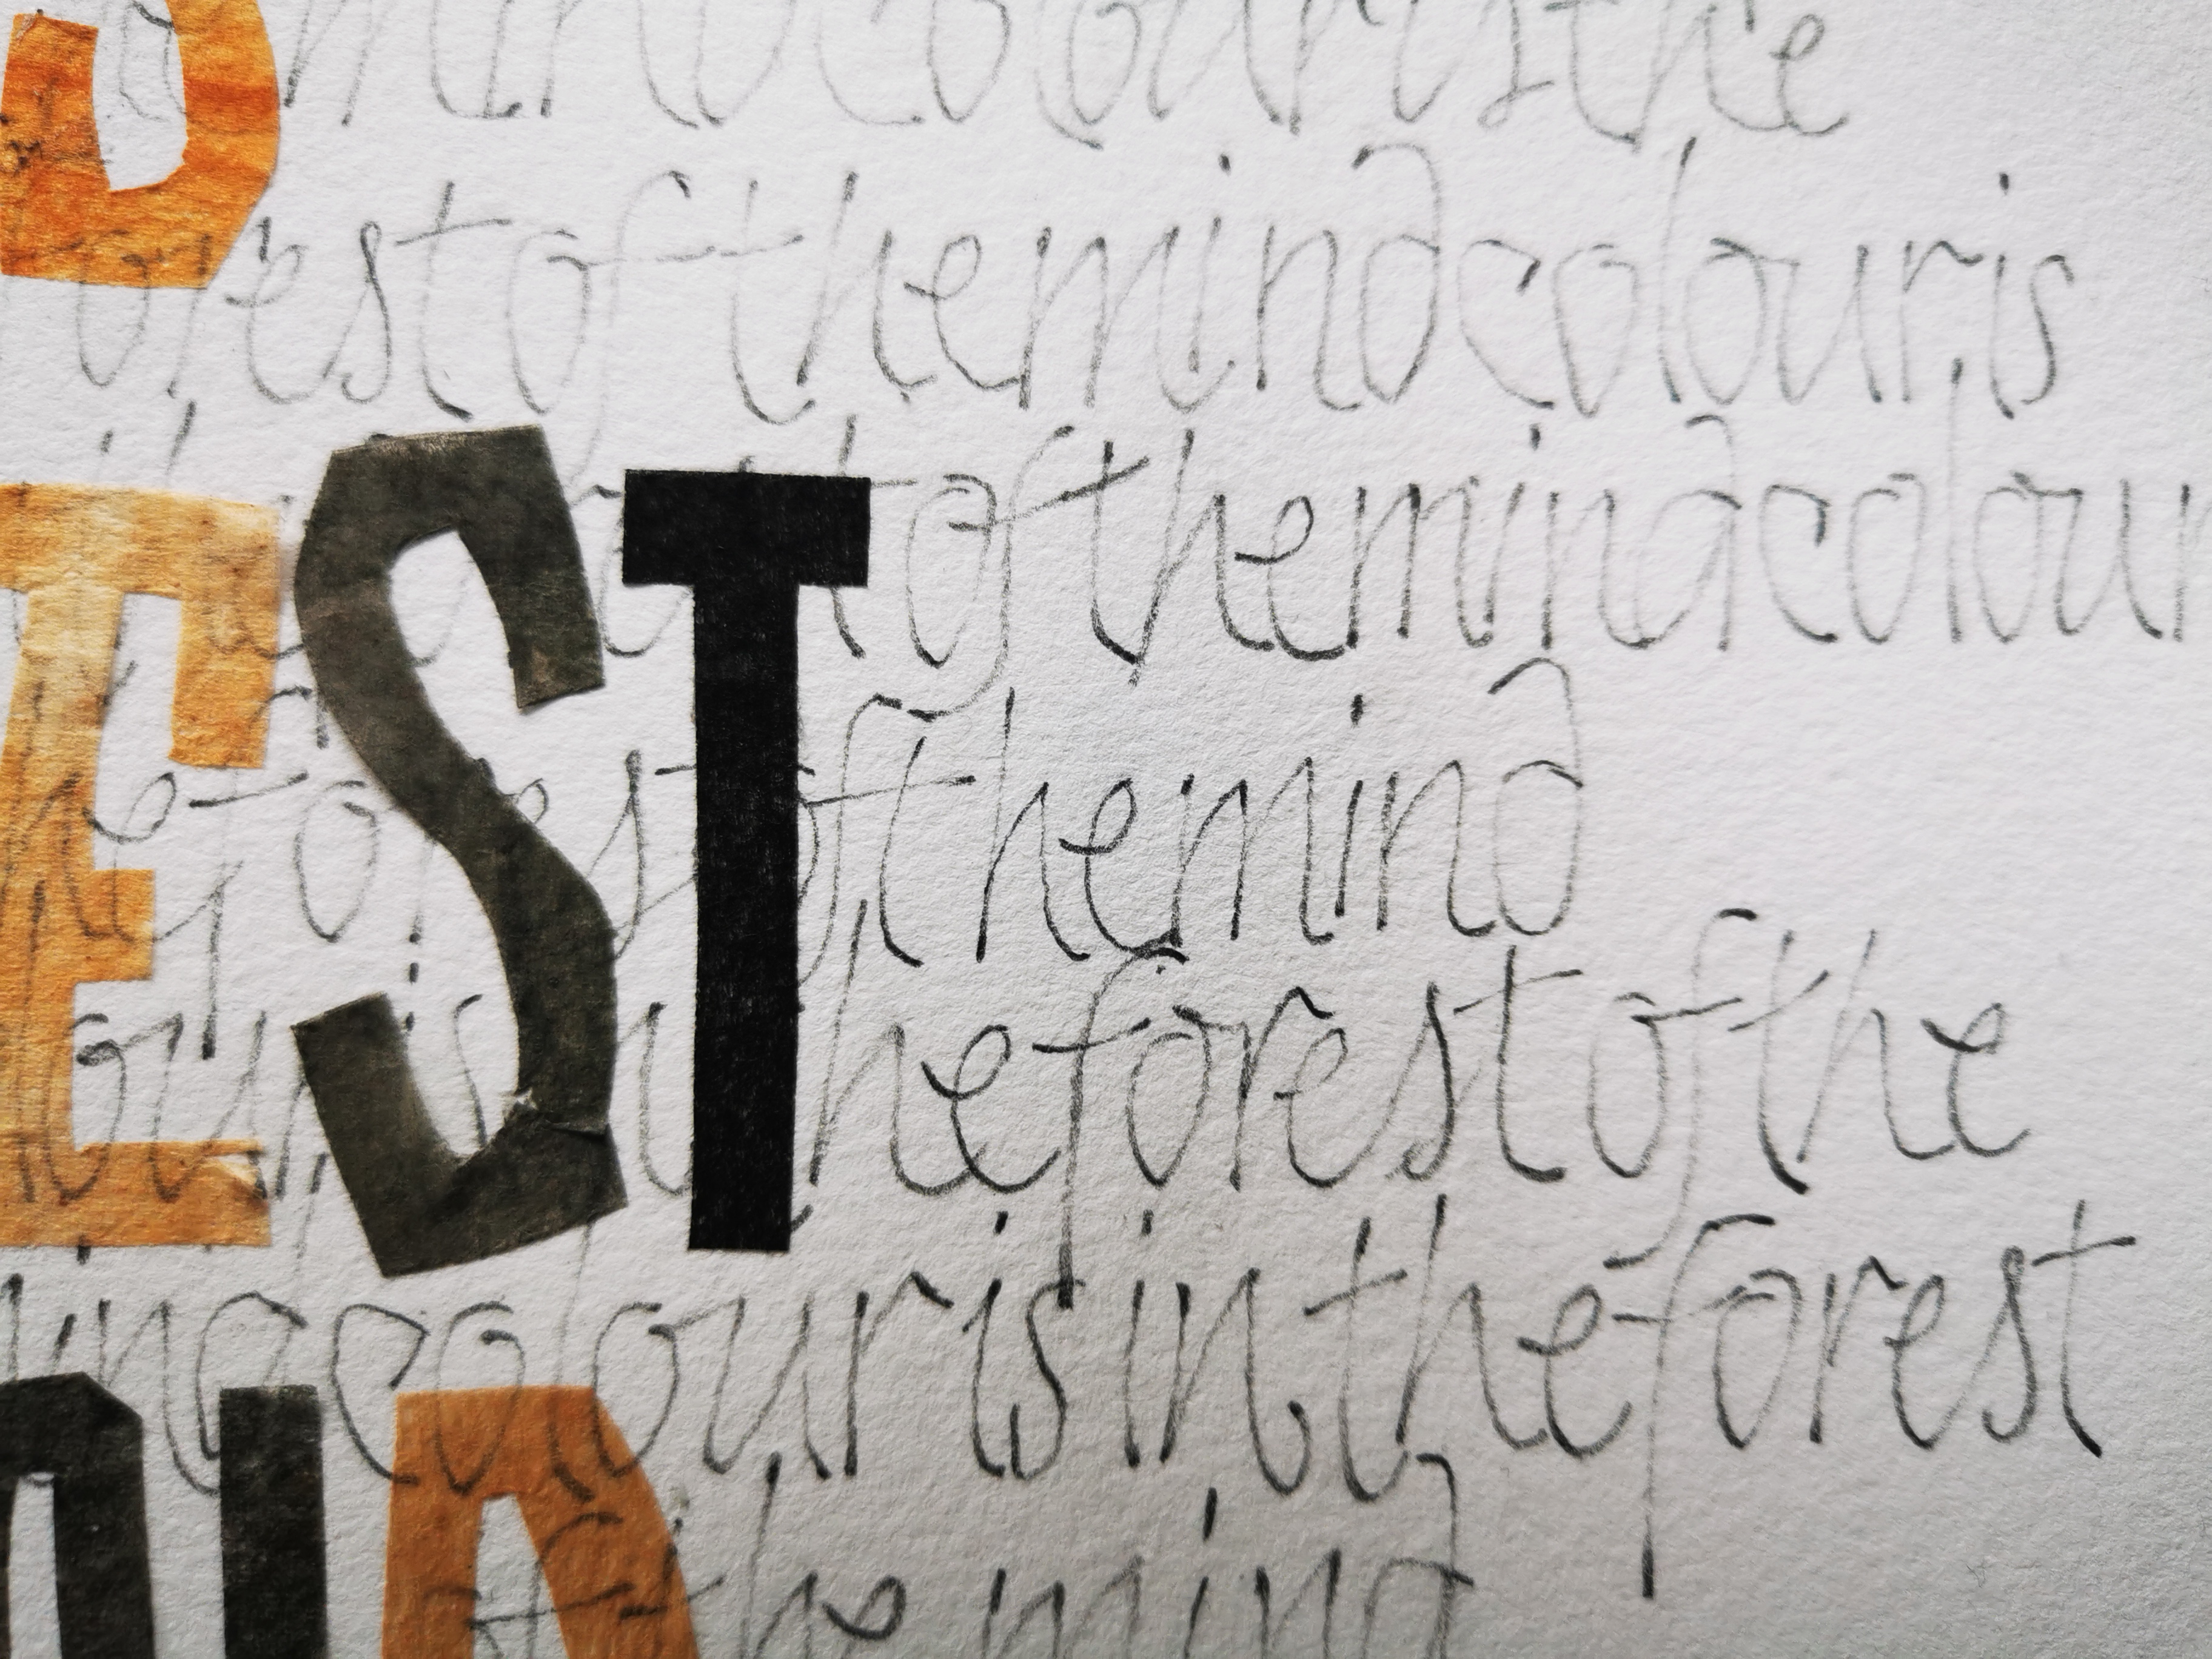 mindcolouristhe
orestofthemindcolouris
tofthemindcolour
EST
heforestofthemind
colourisintheforestofthe
indcolourisintheforest
ofthemind